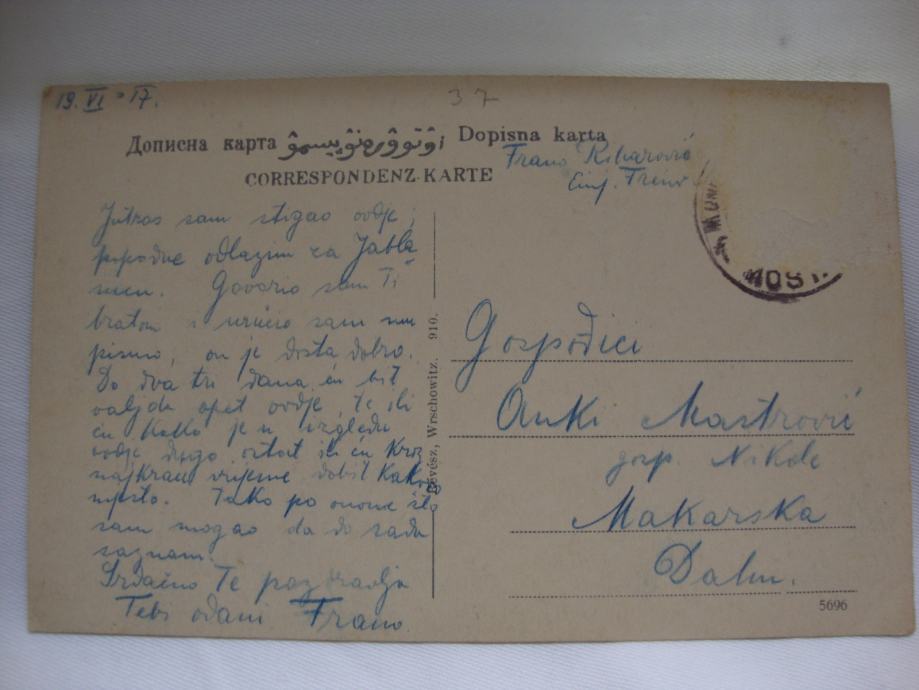 19. VI 17.
37
Дописна карта Dopisna karta
CORRESPONDENZ-KARTE
Frano
Jutros sam stigao ovdje;
popodne odlazim za Jabla
nicu. Govorio sam Ti
bratom i uručio sam mu
pismo, on je dosta dobro.
Do dva tri dana ću bit
valjda opet ovdje, te ili
ću kako je u izgledu
ovdje dugo ostat ili ću kroz
najkraće vrijeme dobit kako
mjesto. Tako po onome što
sam mogao da do sada
saznam.
Srdačno Te pozdravlja
Tebi odani Frano.
Révész, Wrschowitz. 910.
MOST
Gospođici
Anki Mastrović
gosp. Nikole
Makarska
Dalm.
5696